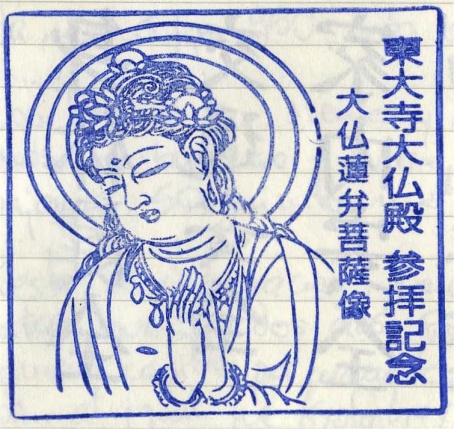 東大寺大仏殿 参拝記念
大仏蓮弁菩薩像